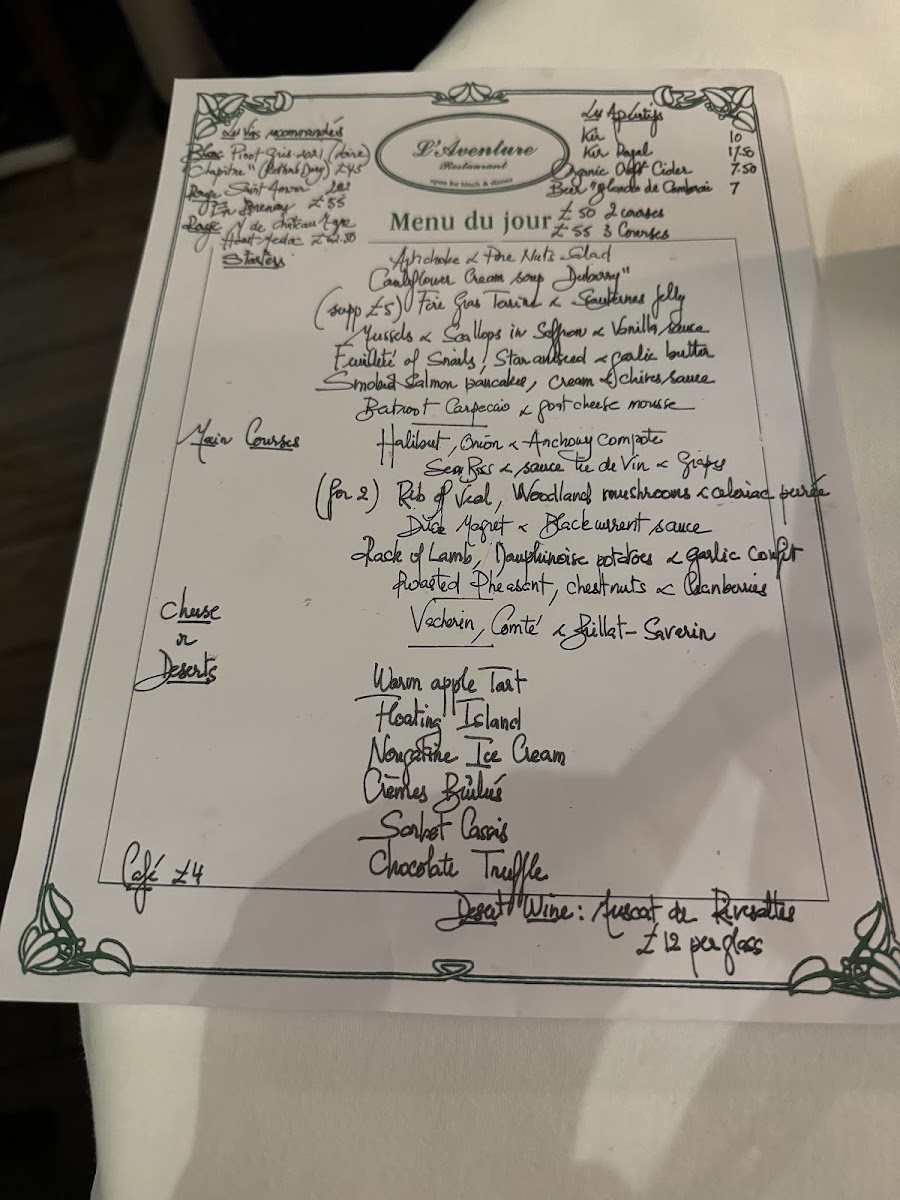 Les Vins recommandés
Blanc Pinot Gris 2021 (Loire)
"Chapitre" £45
Rouge Saint Amour 2021
£55
Rouge de Château
Haut-Medoc
L'Aventure
Restaurant
open for lunch & dinner
Les Apéritifs
Kir 10
Kir Royal 17.50
Organic Cider 7.50
Beer "Blonde de Cambrai 7
Menu du jour
£50 2 courses
£55 3 Courses
Starters
Artichoke & Pine Nuts Salad
Cauliflower Cream soup Dubarry"
(supp £5) Foie Gras Terrine & Sauternes Jelly
Mussels & Scallops in Saffron & Vanilla sauce
Feuilleté of Snails, Staraniseed & garlic butter
Smoked Salmon pancakes, Cream & chives sauce
Carpaccio & goat cheese mousse
Main Courses
Halibut, Onion & Anchovy compote
Sea Bass & sauce Lie de Vin & Grapes
(for 2) Rib of Veal, Woodland mushrooms & celeriac purée
Duck Magret & Blackcurrent sauce
Rack of Lamb, Dauphinoise potatoes & garlic confit
Roasted Pheasant, chestnuts & Cranberries
Cheese
or
Deserts
Vacherin, Comté & Brillat-Saverin
Warm apple Tart
Floating Island
Nougatine Ice Cream
Crèmes Brûlées
Sorbet Cassis
Chocolate Truffle
Café £4
Desert Wine: Muscat de Rivesaltes
£12 per glass